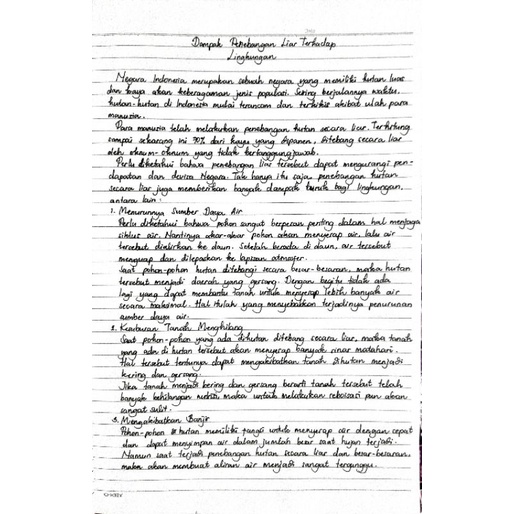 Dampak Penebangan Liar Terhadap
Lingkungan
Negara Indonesia merupakan sebuah negara yang memiliki hutan luas
dan kaya akan keberagaman jenis populasi. Seiring berjalannya waktu,
hutan-hutan di Indonesia mulai terancam dan terkikis akibat ulah para
manusia.
Para manusia telah melakukan penebangan hutan secara liar. Terhitung
sampai sekarang ini 90% dari kayu yang dipanen, ditebang secara liar
oleh oknum-oknum yang tidak bertanggungjawab.
Perlu diketahui bahwa penebangan liar tersebut dapat mengurangi pen-
dapatan dan devisa Negara. Tak hanya itu saja, penebangan hutan
secara liar juga memberikan banyak dampak buruk bagi lingkungan,
antara lain :
1. Menurunnya Sumber Daya Air
Perlu diketahui bahwa pohon sangat berperan penting dalam hal menjaga
siklus air. Nantinya akar-akar pohon akan menyerap air, lalu air
tersebut dialirkan ke daun. Setelah berada di daun, air tersebut
menguap dan dilepaskan ke lapisan atmosfer.
Saat pohon-pohon hutan ditebangi secara besar-besaran, maka hutan
tersebut menjadi daerah yang gersang. Dengan begitu tidak ada
lagi yang dapat membantu tanah untuk menyerap lebih banyak air
secara maksimal. Hal itulah yang menyebabkan terjadinya penurunan
sumber daya air.
2. Kesuburan Tanah Menghilang
Saat pohon-pohon yang ada dihutan ditebang secara liar, maka tanah
yang ada di hutan tersebut akan menyerap banyak sinar matahari.
Hal tersebut tentunya dapat mengakibatkan tanah dihutan menjadi
kering dan gersang.
Jika tanah menjadi kering dan gersang berarti tanah tersebut telah
banyak kehilangan nutrisi, maka untuk melakukan reboisasi pun akan
sangat sulit.
3. Mengakibatkan Banjir
Pohon-pohon di hutan memiliki fungsi untuk menyerap air dengan cepat
dan dapat menyimpan air dalam jumlah besar saat hujan terjadi.
Namun saat terjadi penebangan hutan secara liar dan besar-besaran,
maka akan membuat aliran air menjadi sangat terganggu.